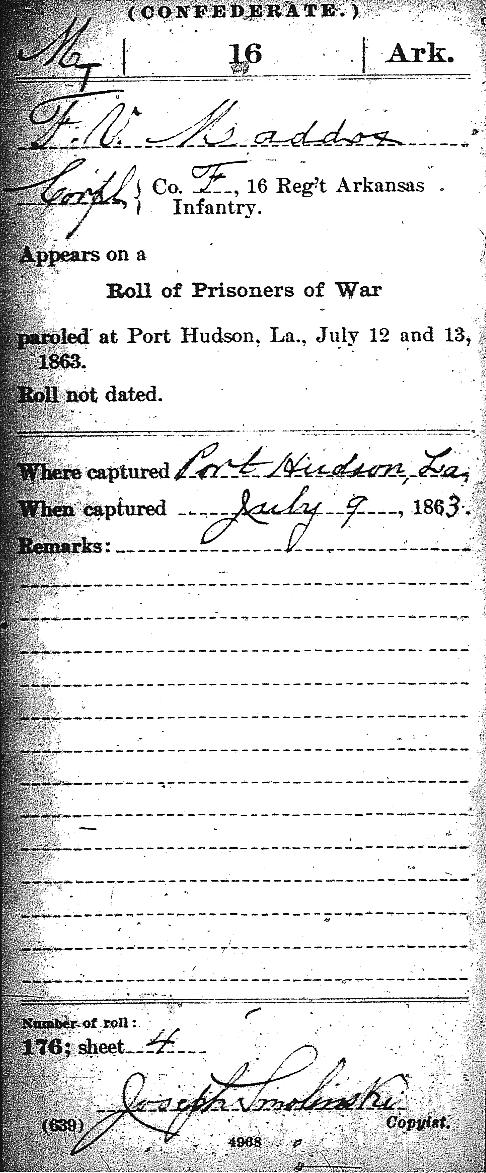 (CONFEDERATE.)
M | 16 | Ark.
F. V. Maddox
Corpl } Co. F, 16 Reg't Arkansas
Infantry.
Appears on a
Roll of Prisoners of War
paroled at Port Hudson, La., July 12 and 13,
1863.
Roll not dated.
Where captured Port Hudson, La,
When captured July 9, 1863.
Remarks:
Number of roll:
176; sheet 4
Joseph Smolinski
(639) Copyist.
4968